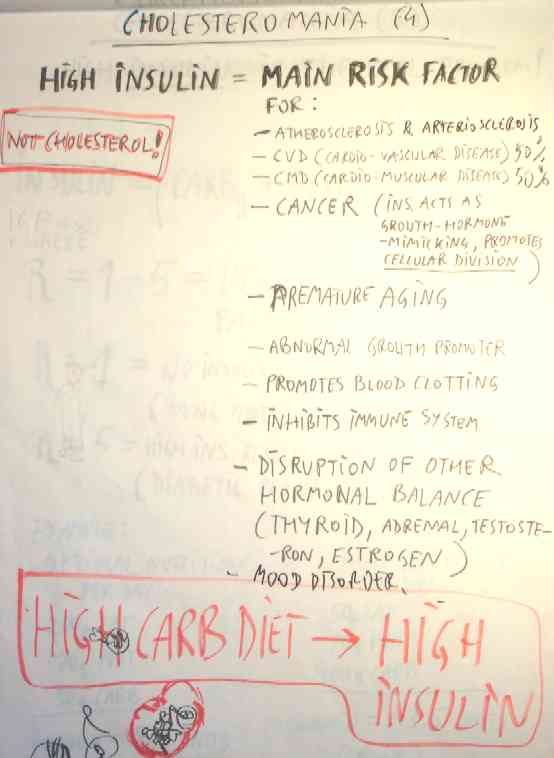 CHOLESTEROMANIA (4)
HIGH INSULIN = MAIN RISK FACTOR
FOR:
NOT CHOLESTEROL!
- ATHEROSCLEROSIS & ARTERIOSCLEROSIS
- CVD (CARDIO-VASCULAR DISEASE) 50%
- CMD (CARDIO-MUSCULAR DISEASE) 50%
- CANCER (INS. ACTS AS
GROUTH-HORMONE
-MIMICKING, PROMOTES
CELLULAR DIVISION)
- PREMATURE AGING
- ABNORMAL GROUTH PROMOTER
- PROMOTES BLOOD CLOTTING
- INHIBITS IMMUNE SYSTEM
- DISRUPTION OF OTHER
HORMONAL BALANCE
(THYROID, ADRENAL, TESTOSTE-
-RON, ESTROGEN)
- MOOD DISORDER.
HIGH CARB DIET → HIGH
INSULIN